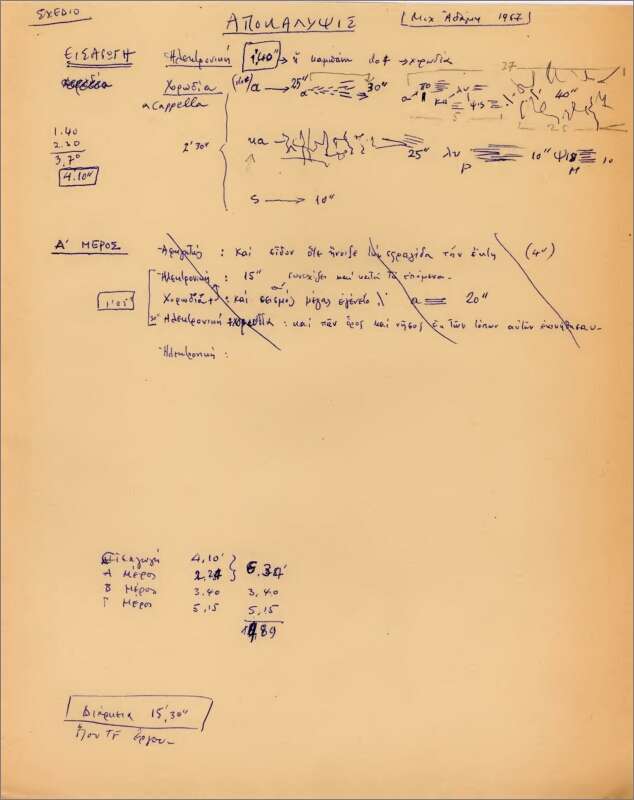 ΣΧΕΔΙΟ
ΑΠΟΚΑΛΥΨΙΣ
(Μιχ Ἀδάμης 1967
ΕΙΣΑΓΩΓΗ Ἠλεκτρονική 1'.40'' → ἢ καμπάνα do# → χορωδία
Χορωδία (do#) a → 25'' 30'' 37
a cappella α 30 κα λυ ψις 40''
5 25
1.40
2.30
3,70
4.10''
2'30''
κα 25'' λυ 10'' ψις 10
P M
S → 10''
Α' ΜΕΡΟΣ Ἀφηγητής : καὶ εἶδον ὅτε ἤνοιξε τὴν σφραγίδα τὴν ἕκτη (4'')
Ἠλεκτρονική : 15'' συνεχίζει καὶ κατὰ τὰ ἑπόμενα.
1'05'' Χορωδία : καὶ σεισμός μέγας ἐγένετο a 20''
30'' Ἠλεκτρονική + χορωδία : καὶ πᾶν ὄρος καὶ νῆσος ἐκ τῶν τόπων αὐτῶν ἐκινήθησαν.
Ἠλεκτρονική :
Εἰσαγωγή 4,10'
Α Μέρος 2.24 6.34'
Β Μέρος 3.40 3,40
Γ Μέρος 5,15 5,15
Διάρκεια 15',30''
ὅλου τοῦ ἔργου